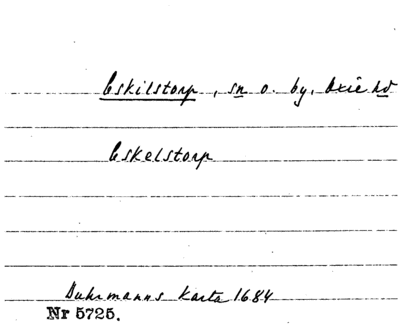 Eskilstorp, sn o. by, Oxie hd
Eskelstorp
Buhrmanns Karta 1684
Nr 5725.